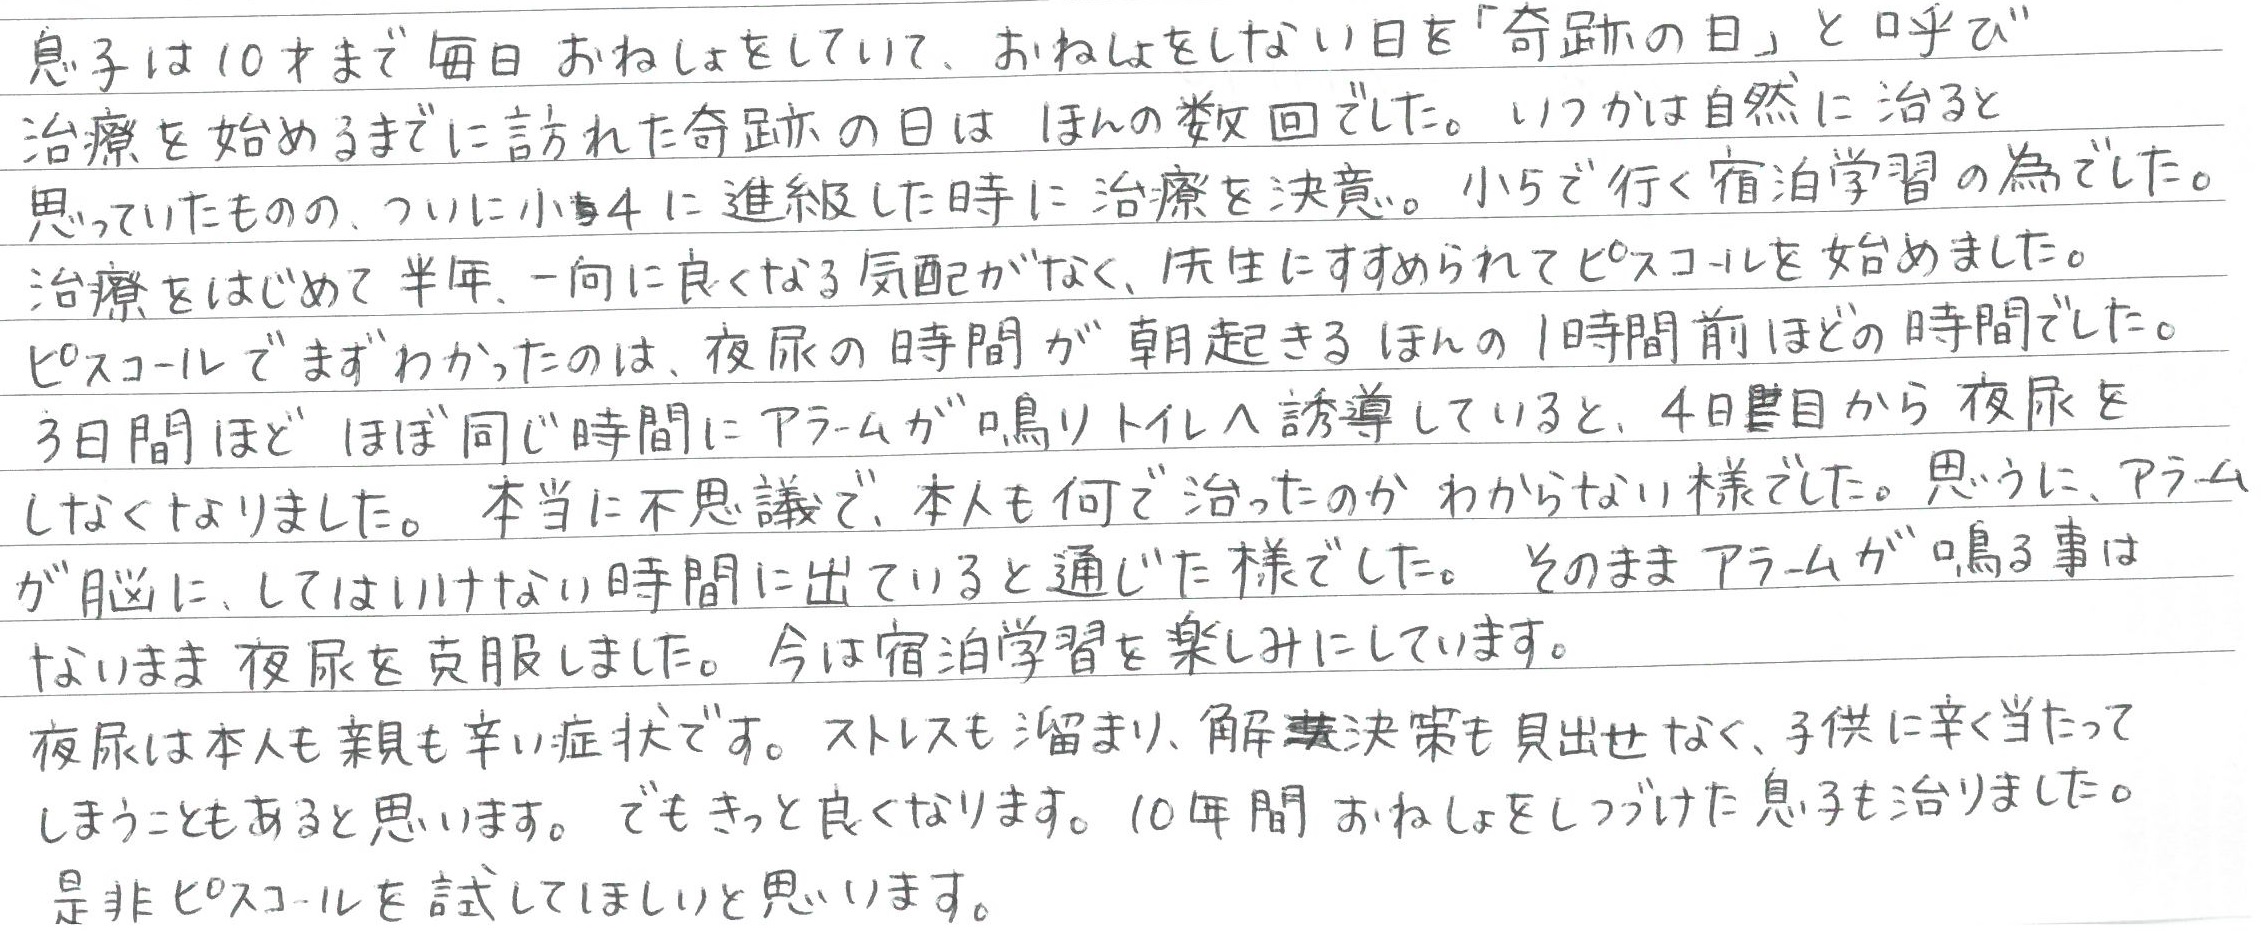 息子は10才まで毎日おねしょをしていて、おねしょをしない日を「奇跡の日」と呼び
治療を始めるまでに訪れた奇跡の日はほんの数回でした。いつかは自然に治ると
思っていたものの、ついに小4に進級した時に治療を決意。小5で行く宿泊学習の為でした。
治療をはじめて半年、一向に良くなる気配がなく、先生にすすめられてピスコールを始めました。
ピスコールでまずわかったのは、夜尿の時間が朝起きるほんの1時間前ほどの時間でした。
3日間ほどほぼ同じ時間にアラームが鳴りトイレへ誘導していると、4日目から夜尿を
しなくなりました。本当に不思議で、本人も何で治ったのかわからない様でした。思うに、アラーム
が脳に、してはいけない時間に出ていると通じた様でした。そのままアラームが鳴る事は
ないまま夜尿を克服しました。今は宿泊学習を楽しみにしています。
夜尿は本人も親も辛い症状です。ストレスも溜まり、解決策も見出せなく、子供に辛く当たって
しまうこともあると思います。でもきっと良くなります。10年間おねしょをしつづけた息子も治りました。
是非ピスコールを試してほしいと思います。